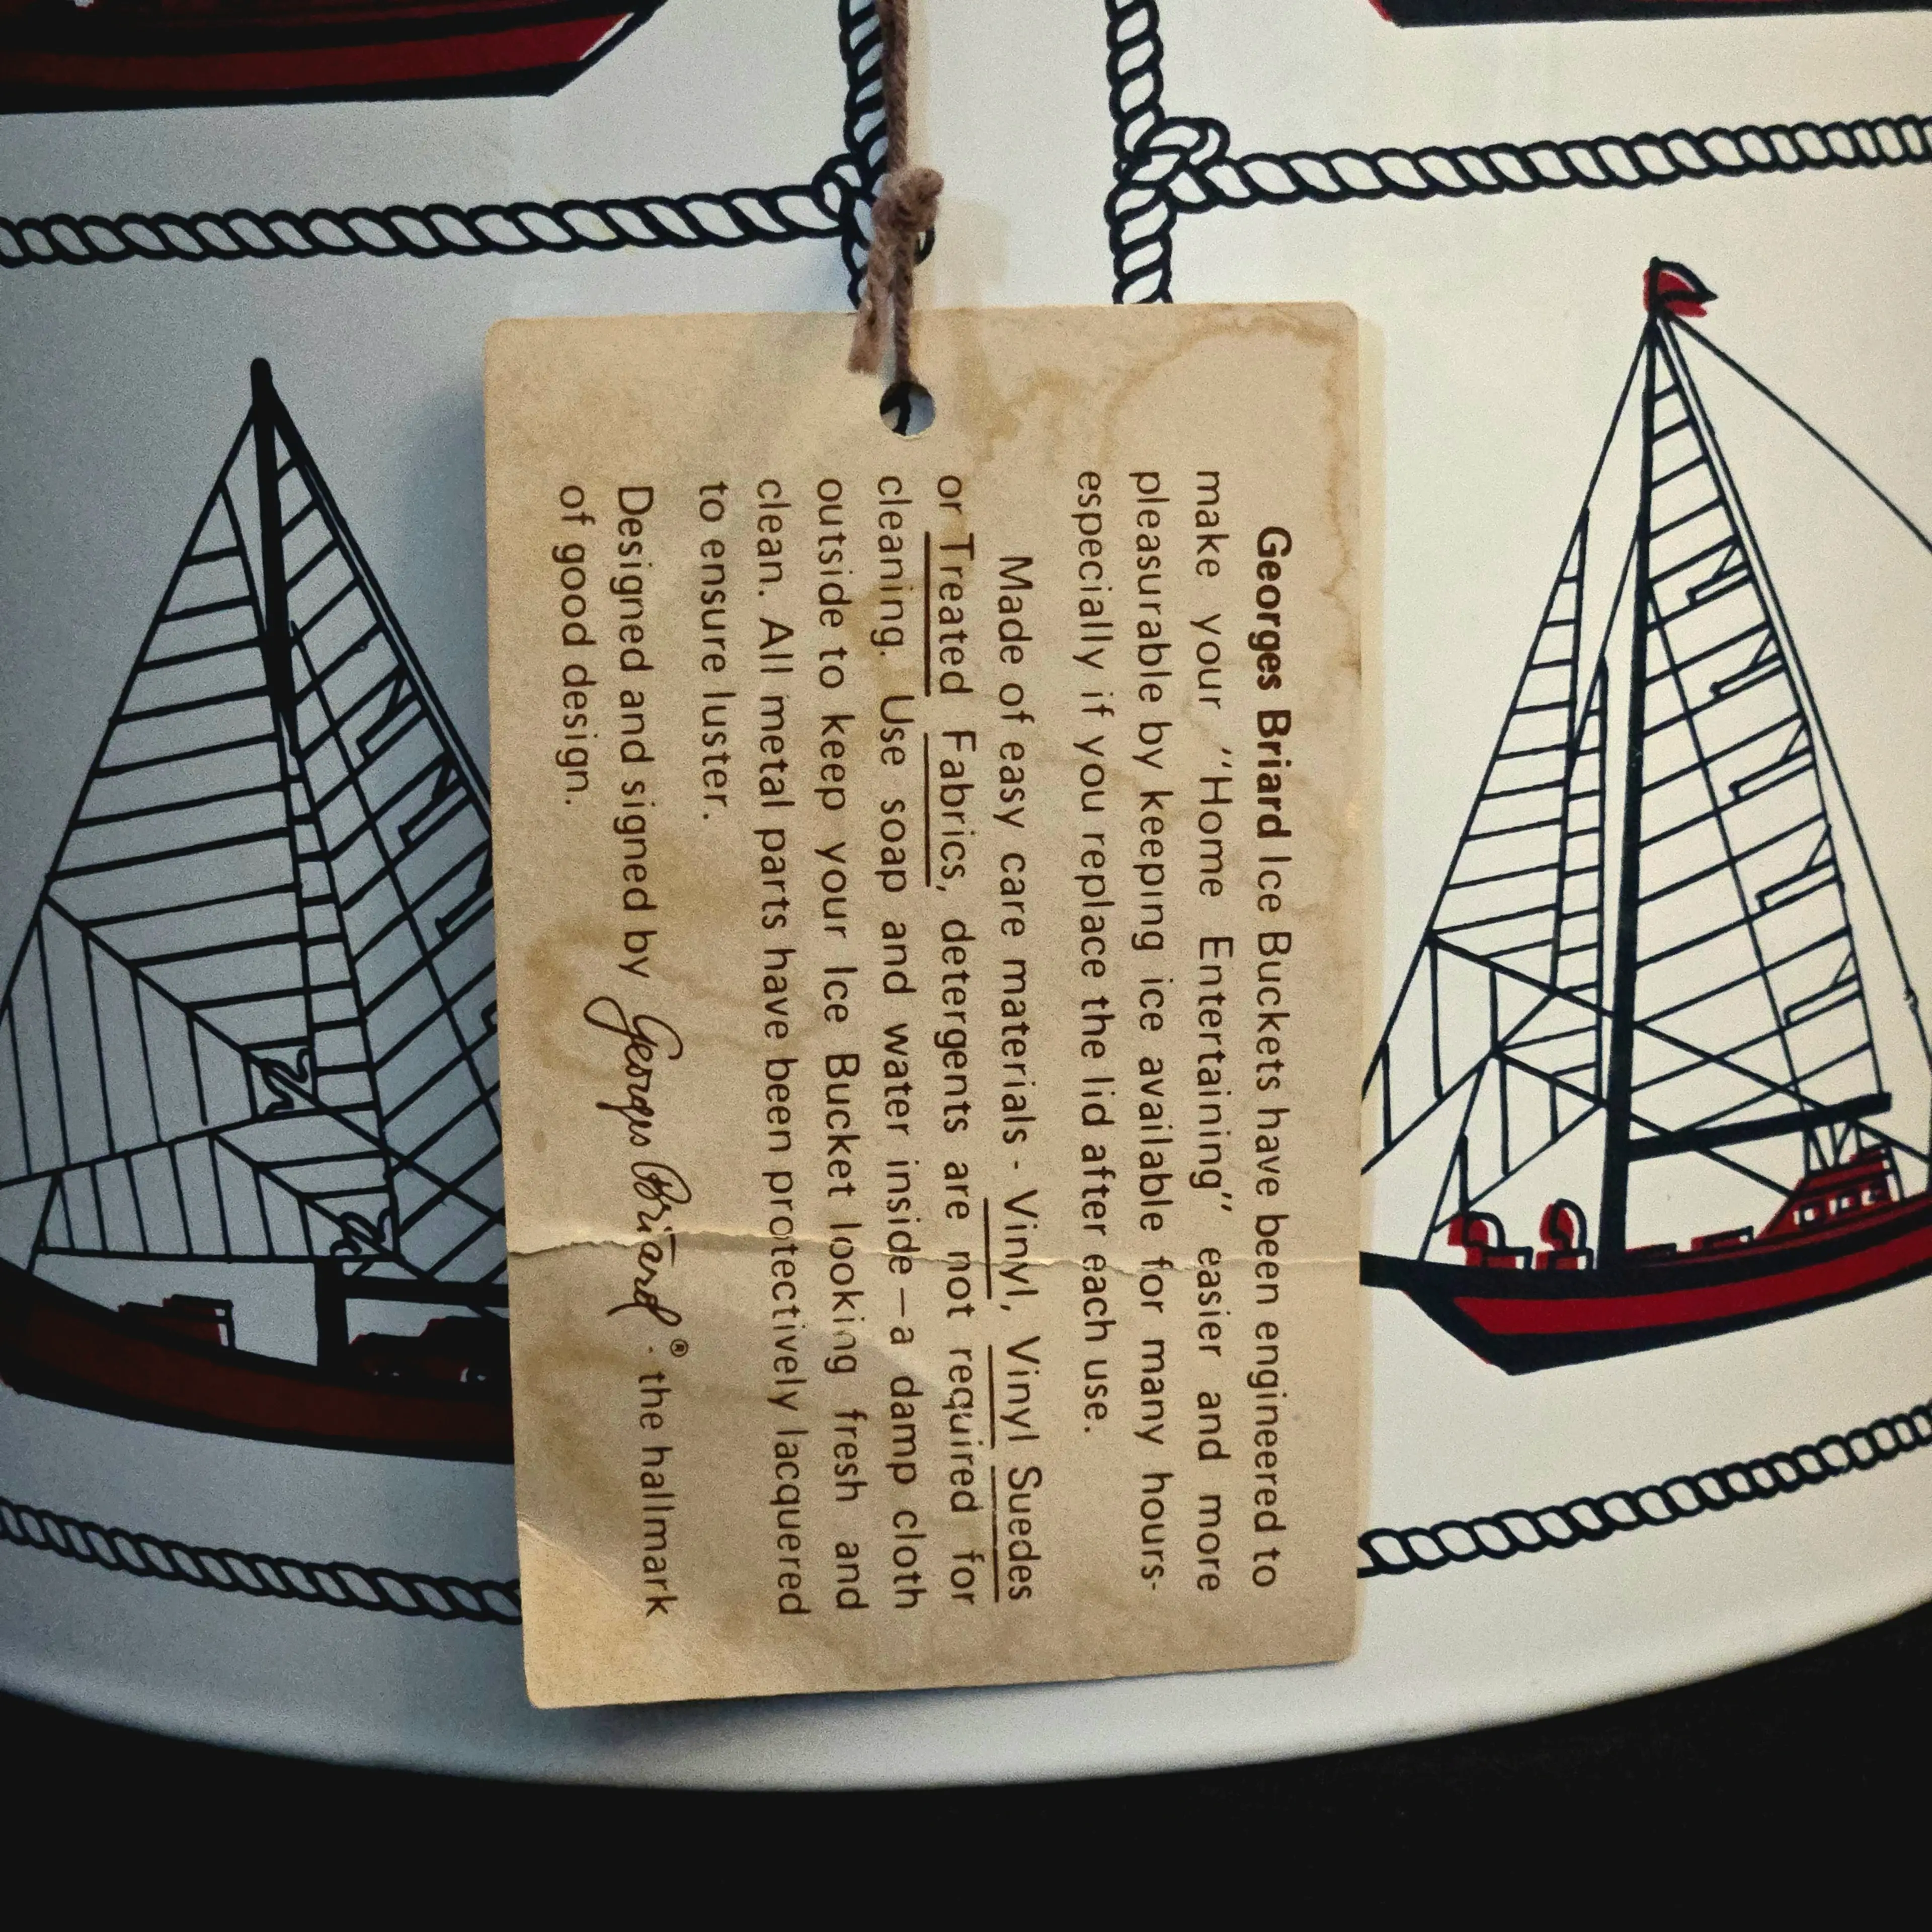 Georges Briard Ice Buckets have been engineered to
make your ''Home Entertaining'' easier and more
pleasurable by keeping ice available for many hours-
especially if you replace the lid after each use.
Made of easy care materials - Vinyl, Vinyl Suedes
or Treated Fabrics, detergents are not required for
cleaning. Use soap and water inside—a damp cloth
outside to keep your Ice Bucket looking fresh and
clean. All metal parts have been protectively lacquered
to ensure luster.
Designed and signed by Georges Briard® - the hallmark
of good design.